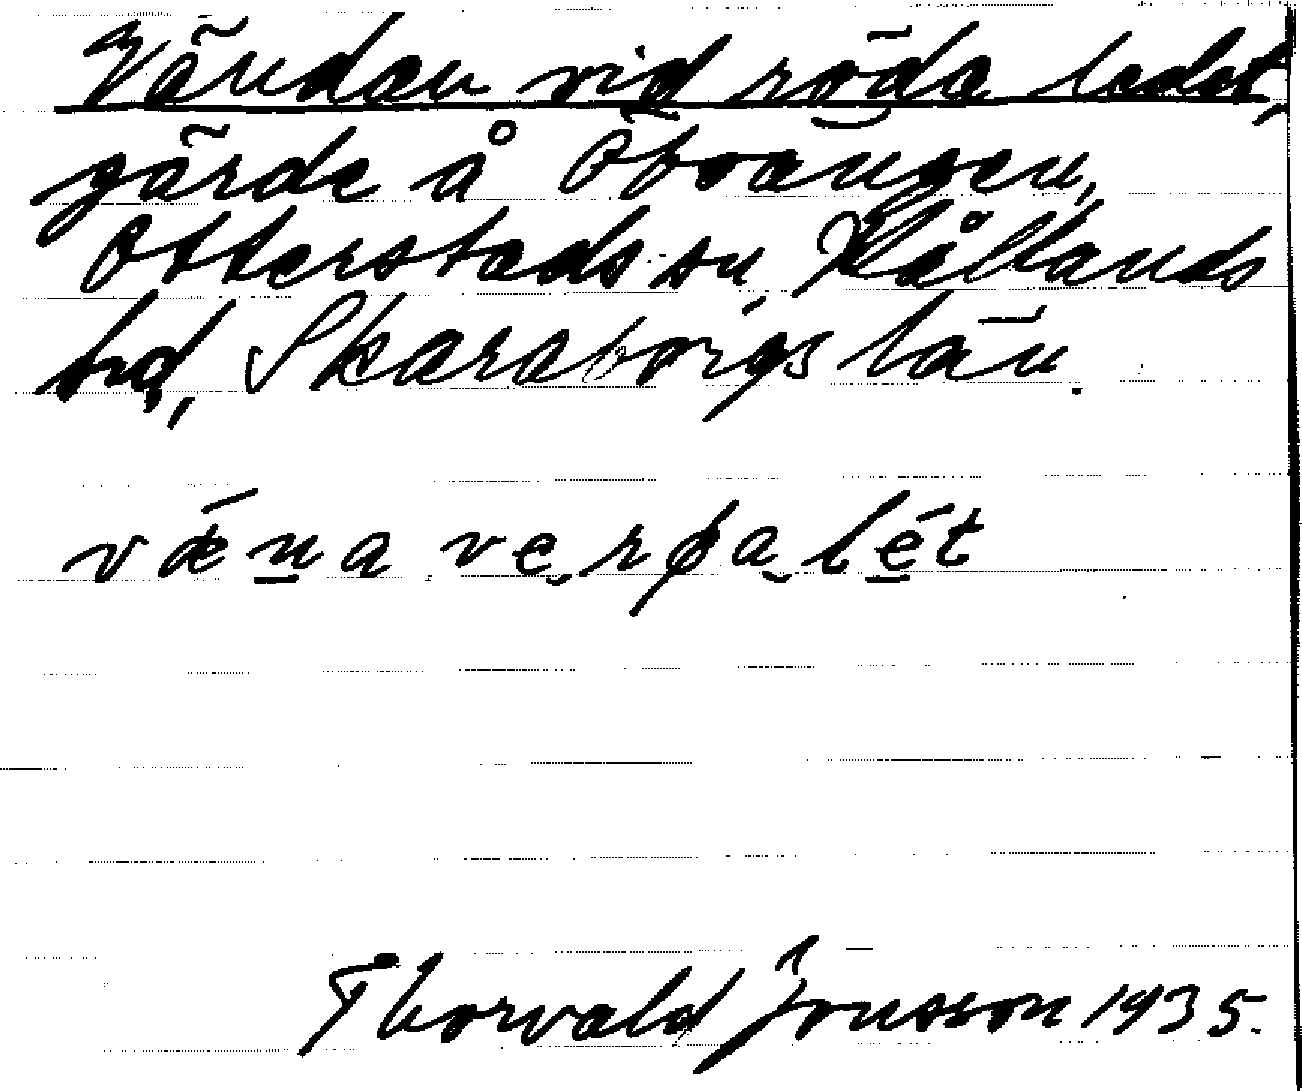 Vändan vid röda ledet,
gärde å Öboängen,
Otterstads sn, Kållands
hd, Skaraborgs län.
væna ve røa lét
Thorvald Jonsson 1935.